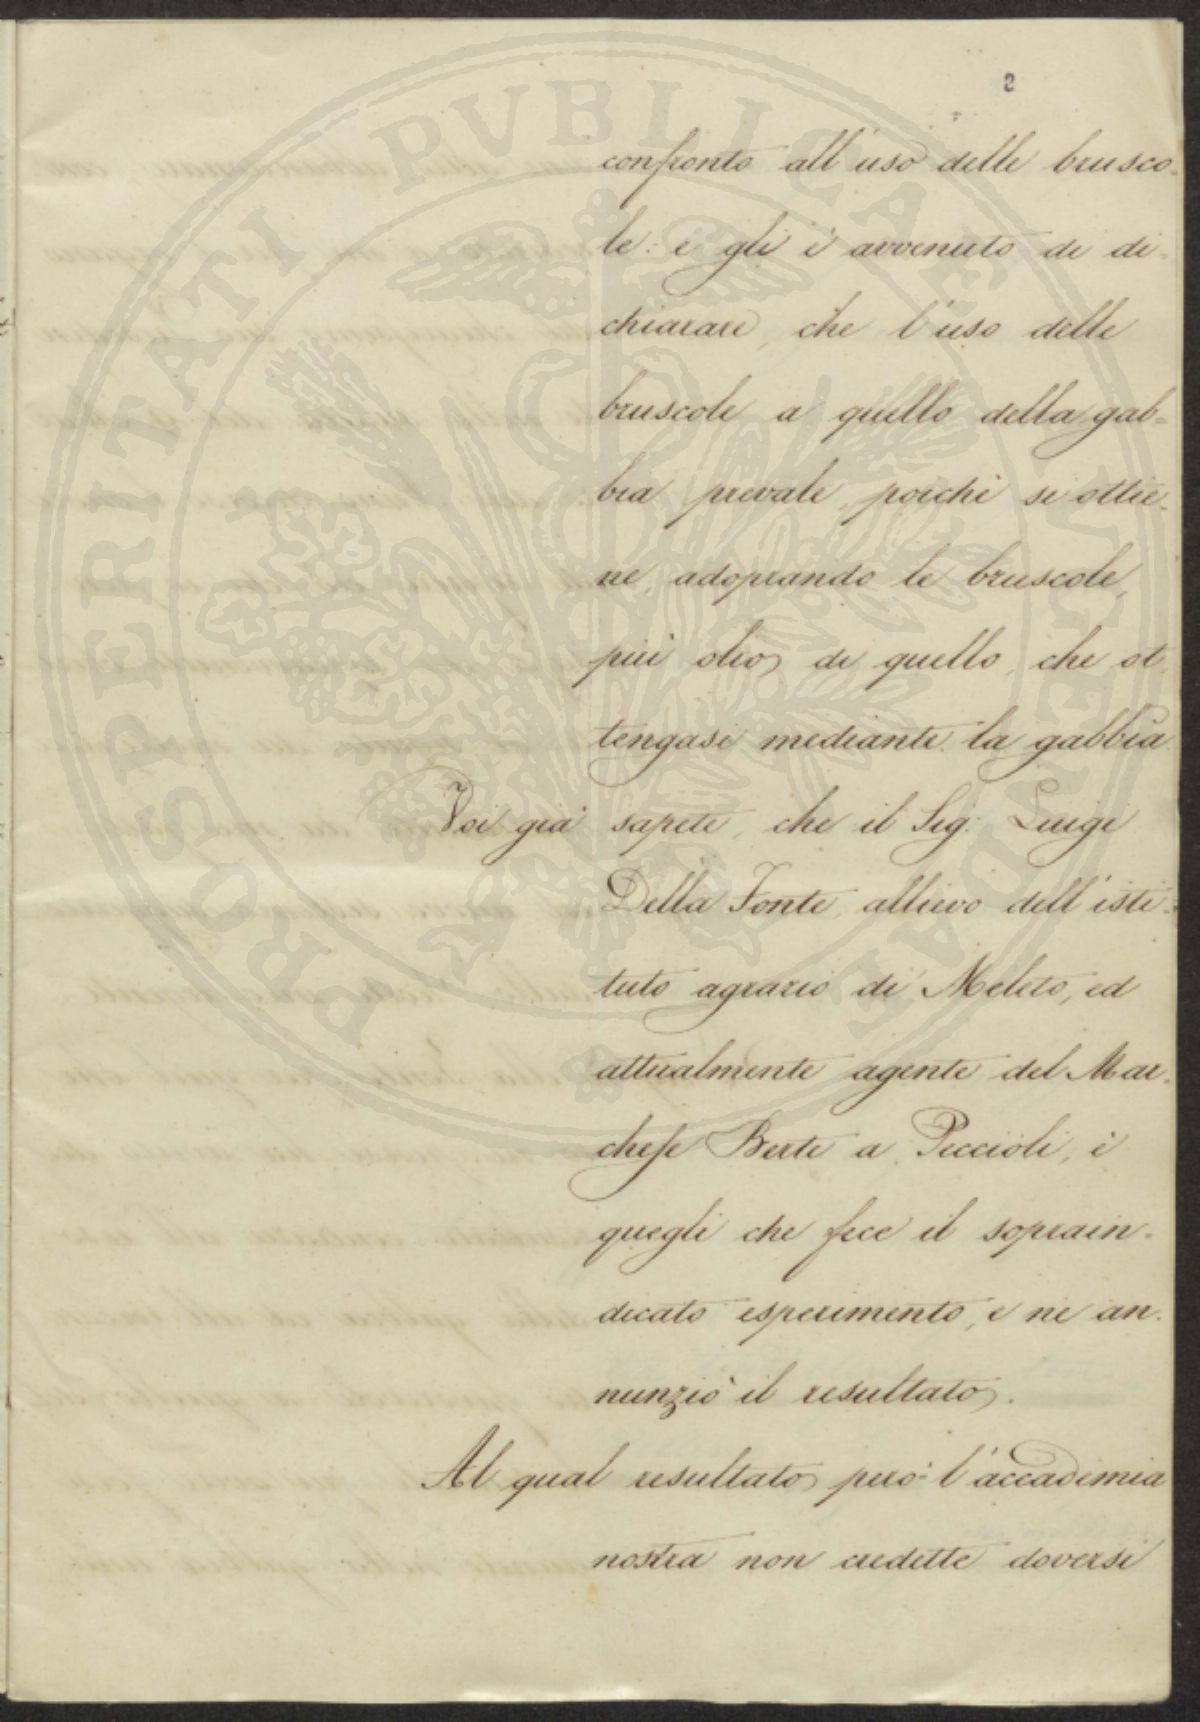 PROSPERITATI PVBLICAE AVGENDAE
2
confronto all'uso delle brusco-
le: e gli è avvenuto di di-
chiarare, che l'uso delle
bruscole a quello della gab-
bia prevale, poichè si ottie-
ne, adoprando le bruscole,
più olio, di quello, che ot-
tengasi mediante la gabbia.
Voi già sapete, che il Sig: Luigi
Della Fonte, allievo dell'isti-
tuto agrario di Meleto, ed
attualmente agente del Mar-
chese Berte a Peccioli, è
quegli che fece il soprain-
dicato esperimento, e ne an-
nunziò il resultato.
Al qual resultato però l'accademia
nostra non credette doversi